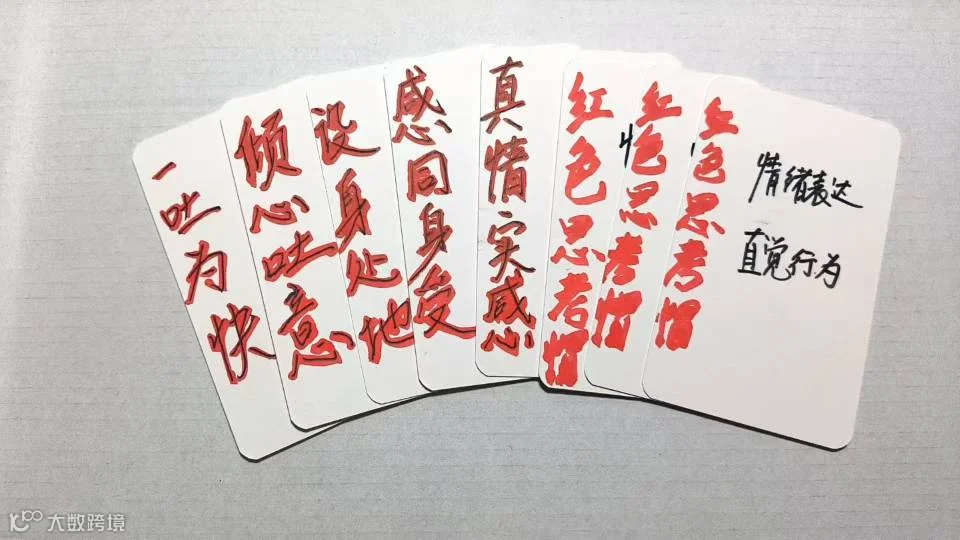 一吐为快
倾心吐意
设身处地
感同身受
真情实感
红色思考帽
红色思考帽
情
红色思考帽
情绪表达
直觉行为
大数跨境